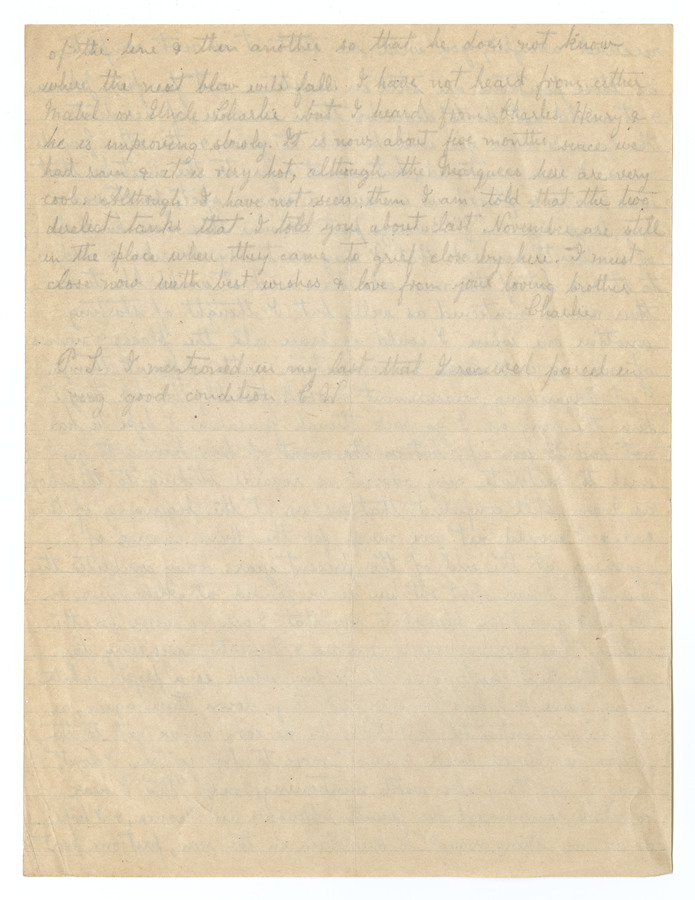 of the line & then another so that he does not know
where the next blow will fall. I have not heard from either
Mabel or Uncle Charlie but I heard from Charles Henry &
he is improving slowly. It is now about five months since we
had rain & it is very hot, although the Marquees here are very
cool. Although I have not seen them I am told that the two
derelect tanks that I told you about last November are still
in the place where they came to grief close by here. I must
close now with best wishes & love from your loving brother
Charlie
P.S. I mentioned in my last that I received parcel in
good condition. C.W.